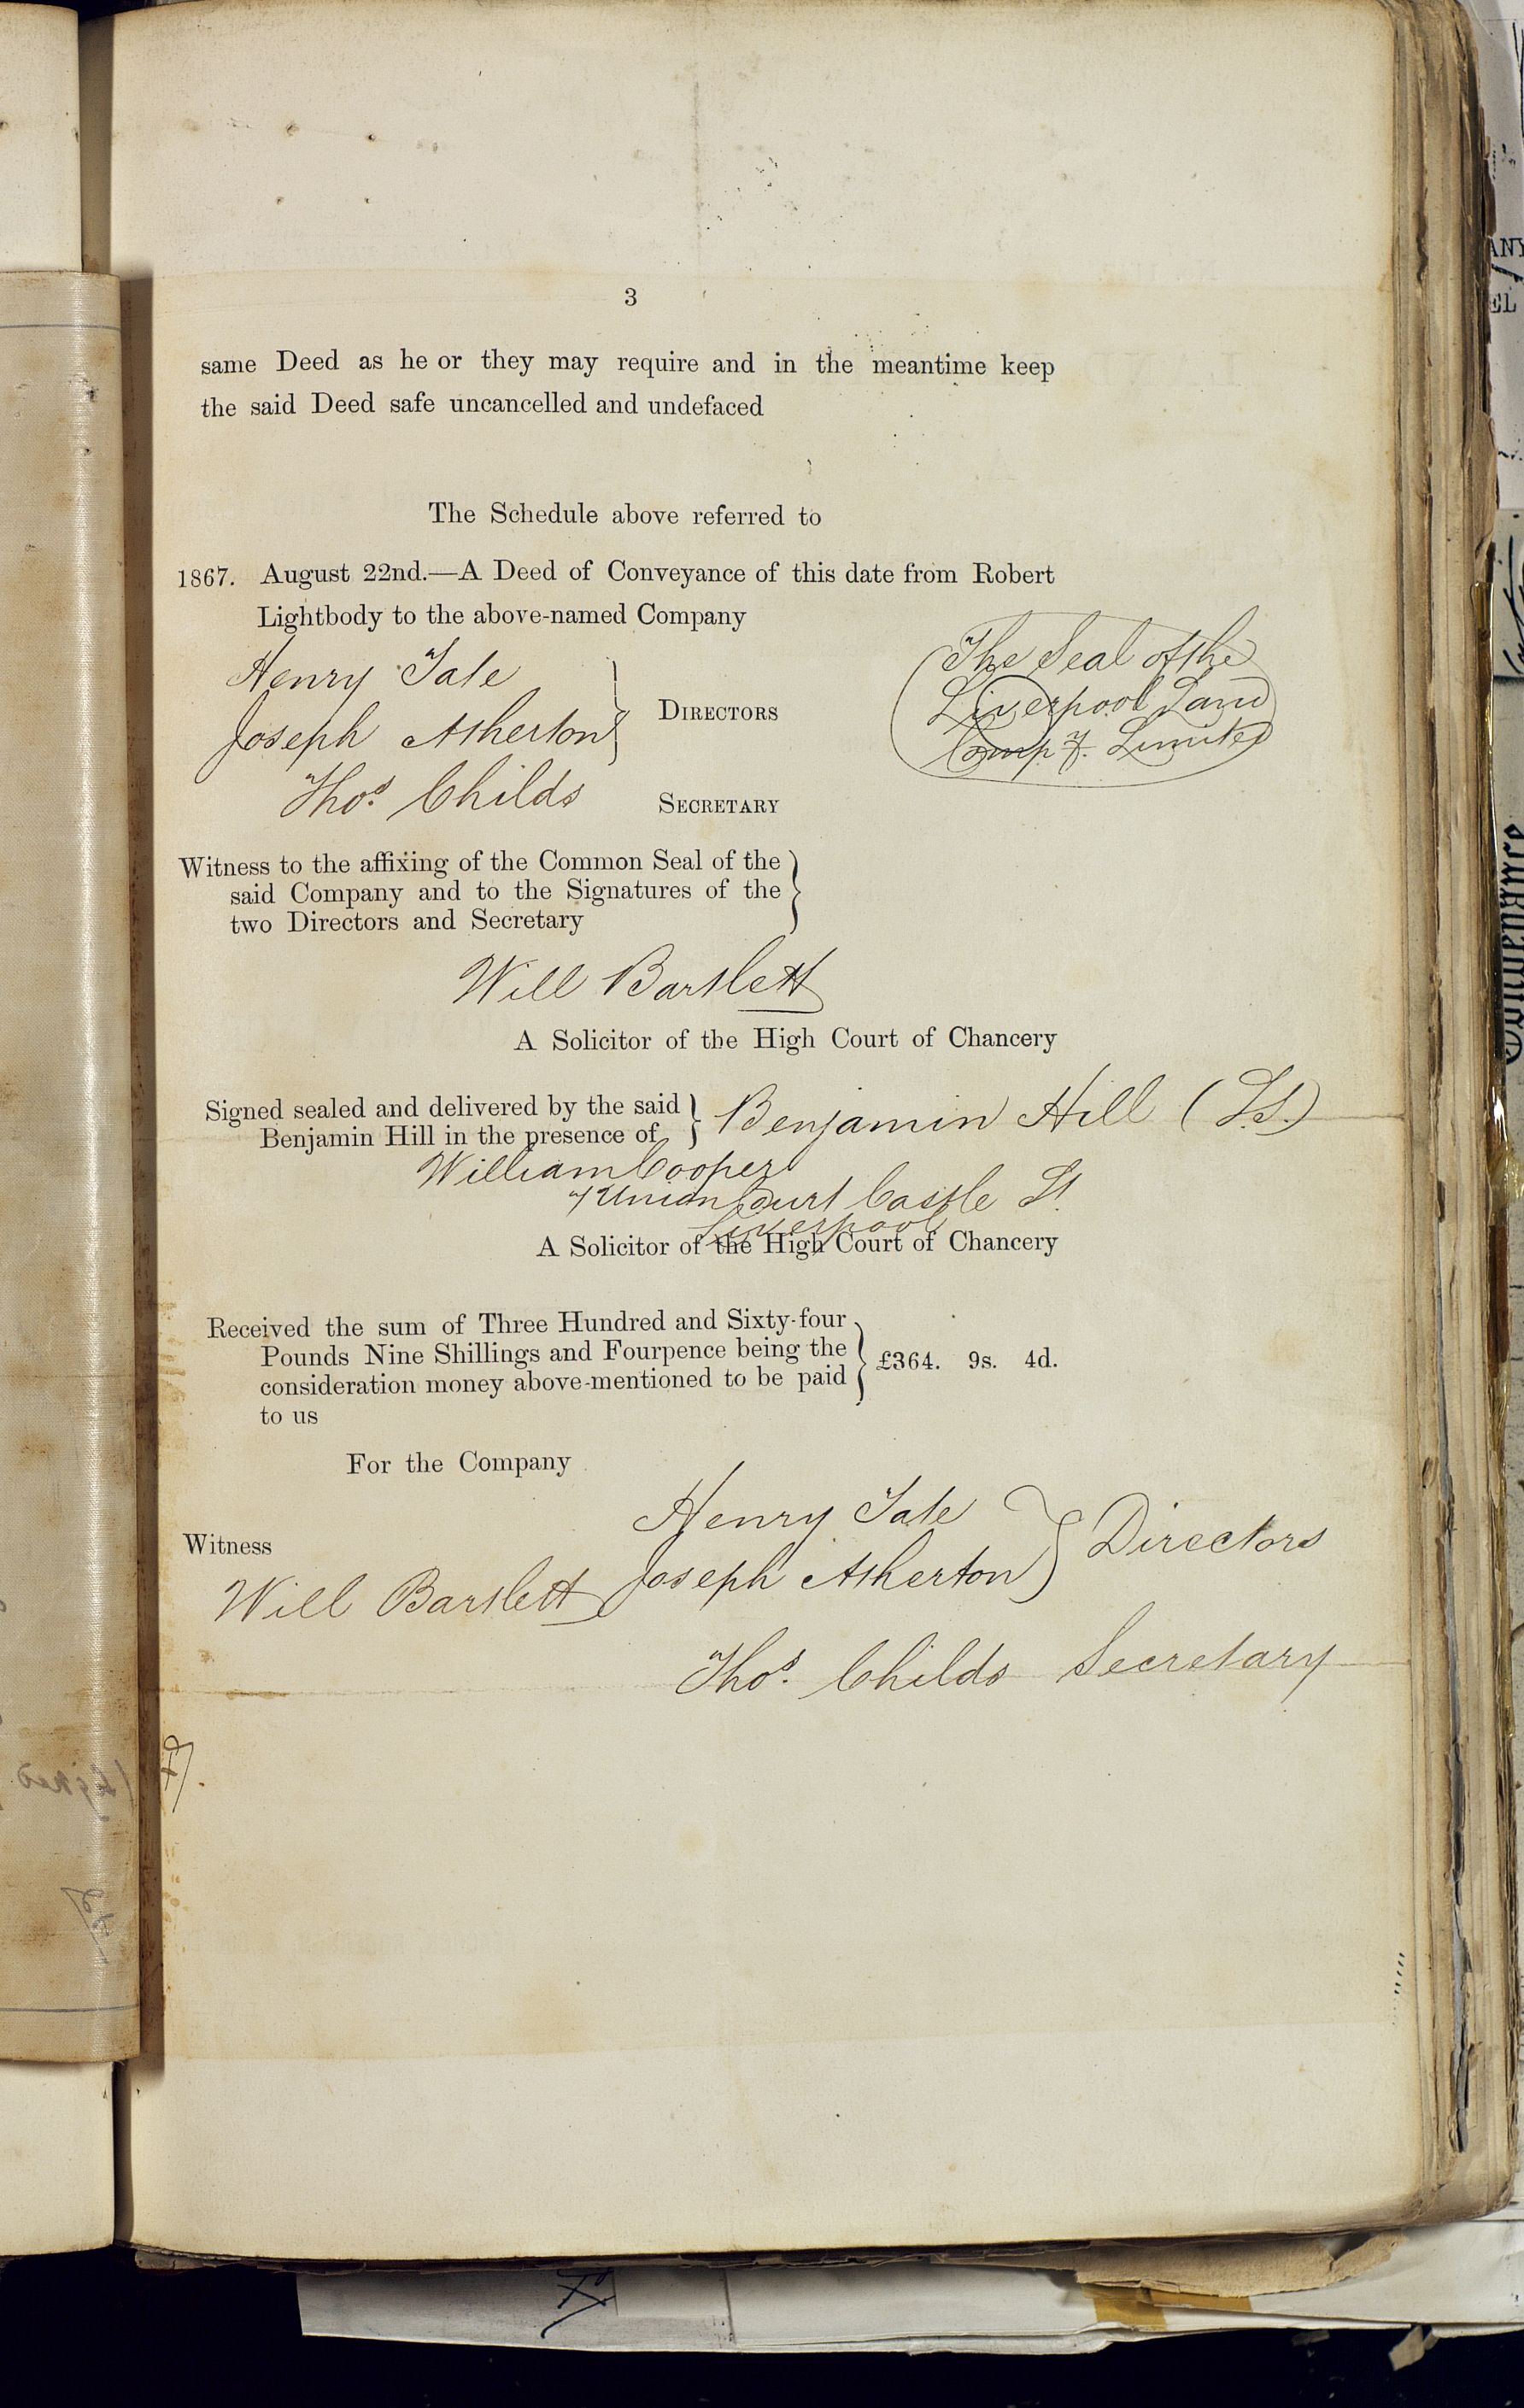 3
same Deed as he or they may require and in the meantime keep
the said Deed safe uncancelled and undefaced
The Schedule above referred to
1867. August 22nd.—A Deed of Conveyance of this date from Robert
Lightbody to the above-named Company
Henry Tate
Joseph Atherton
DIRECTORS
The Seal of the
Liverpool Land
Compy. Limited
Thos. Childs
SECRETARY
Witness to the affixing of the Common Seal of the
said Company and to the Signatures of the
two Directors and Secretary
Will Bartlett
A Solicitor of the High Court of Chancery
Signed sealed and delivered by the said
Benjamin Hill in the presence of
Benjamin Hill (L.S.)
William Cooper
7 Union Court Castle St.
Liverpool
A Solicitor of the High Court of Chancery
Received the sum of Three Hundred and Sixty-four
Pounds Nine Shillings and Fourpence being the
consideration money above-mentioned to be paid
to us
£364. 9s. 4d.
For the Company
Henry Tate
Joseph Atherton
Directors
Witness
Will Bartlett
Thos. Childs Secretary